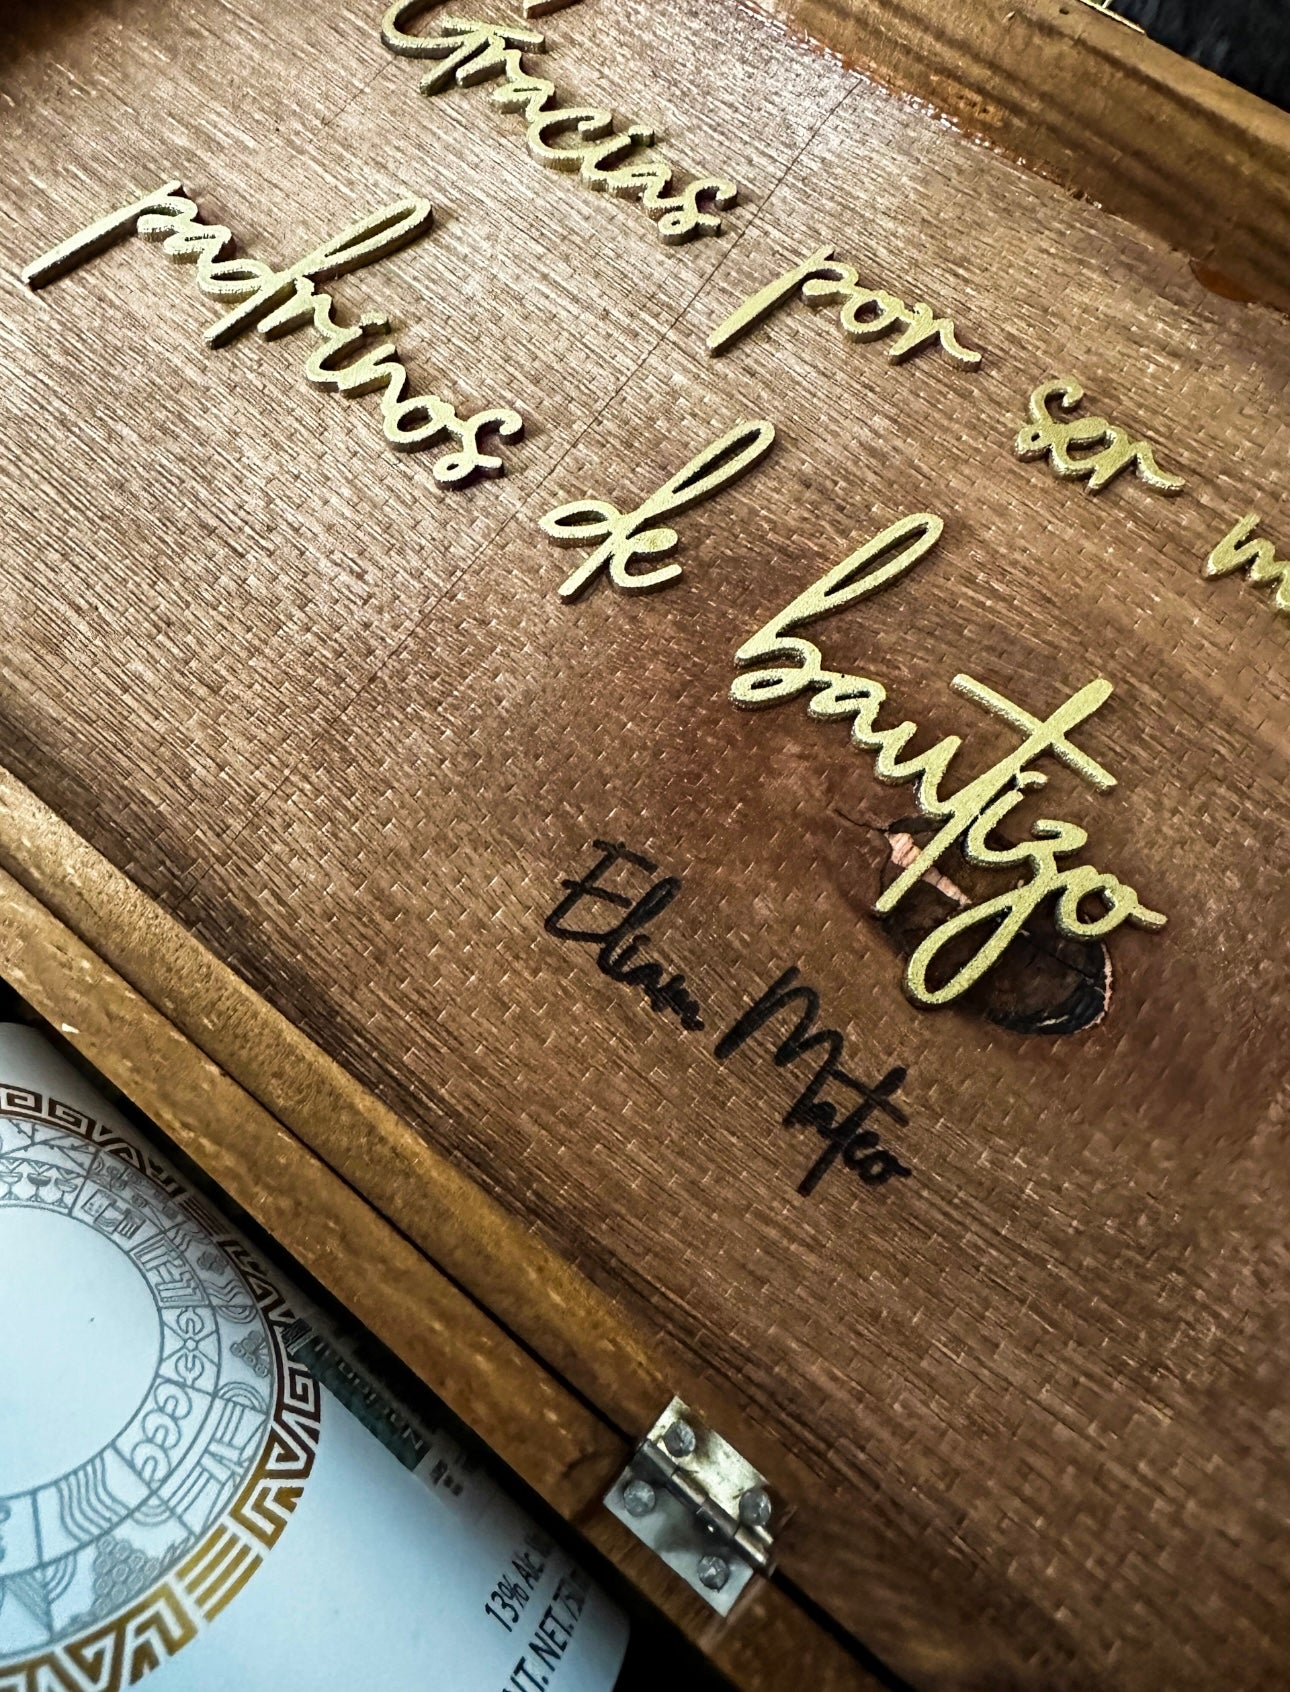 Gracias por ser m
padrinos de bautizo
Elian Mateo
13% Alc.
NT. NET. 750